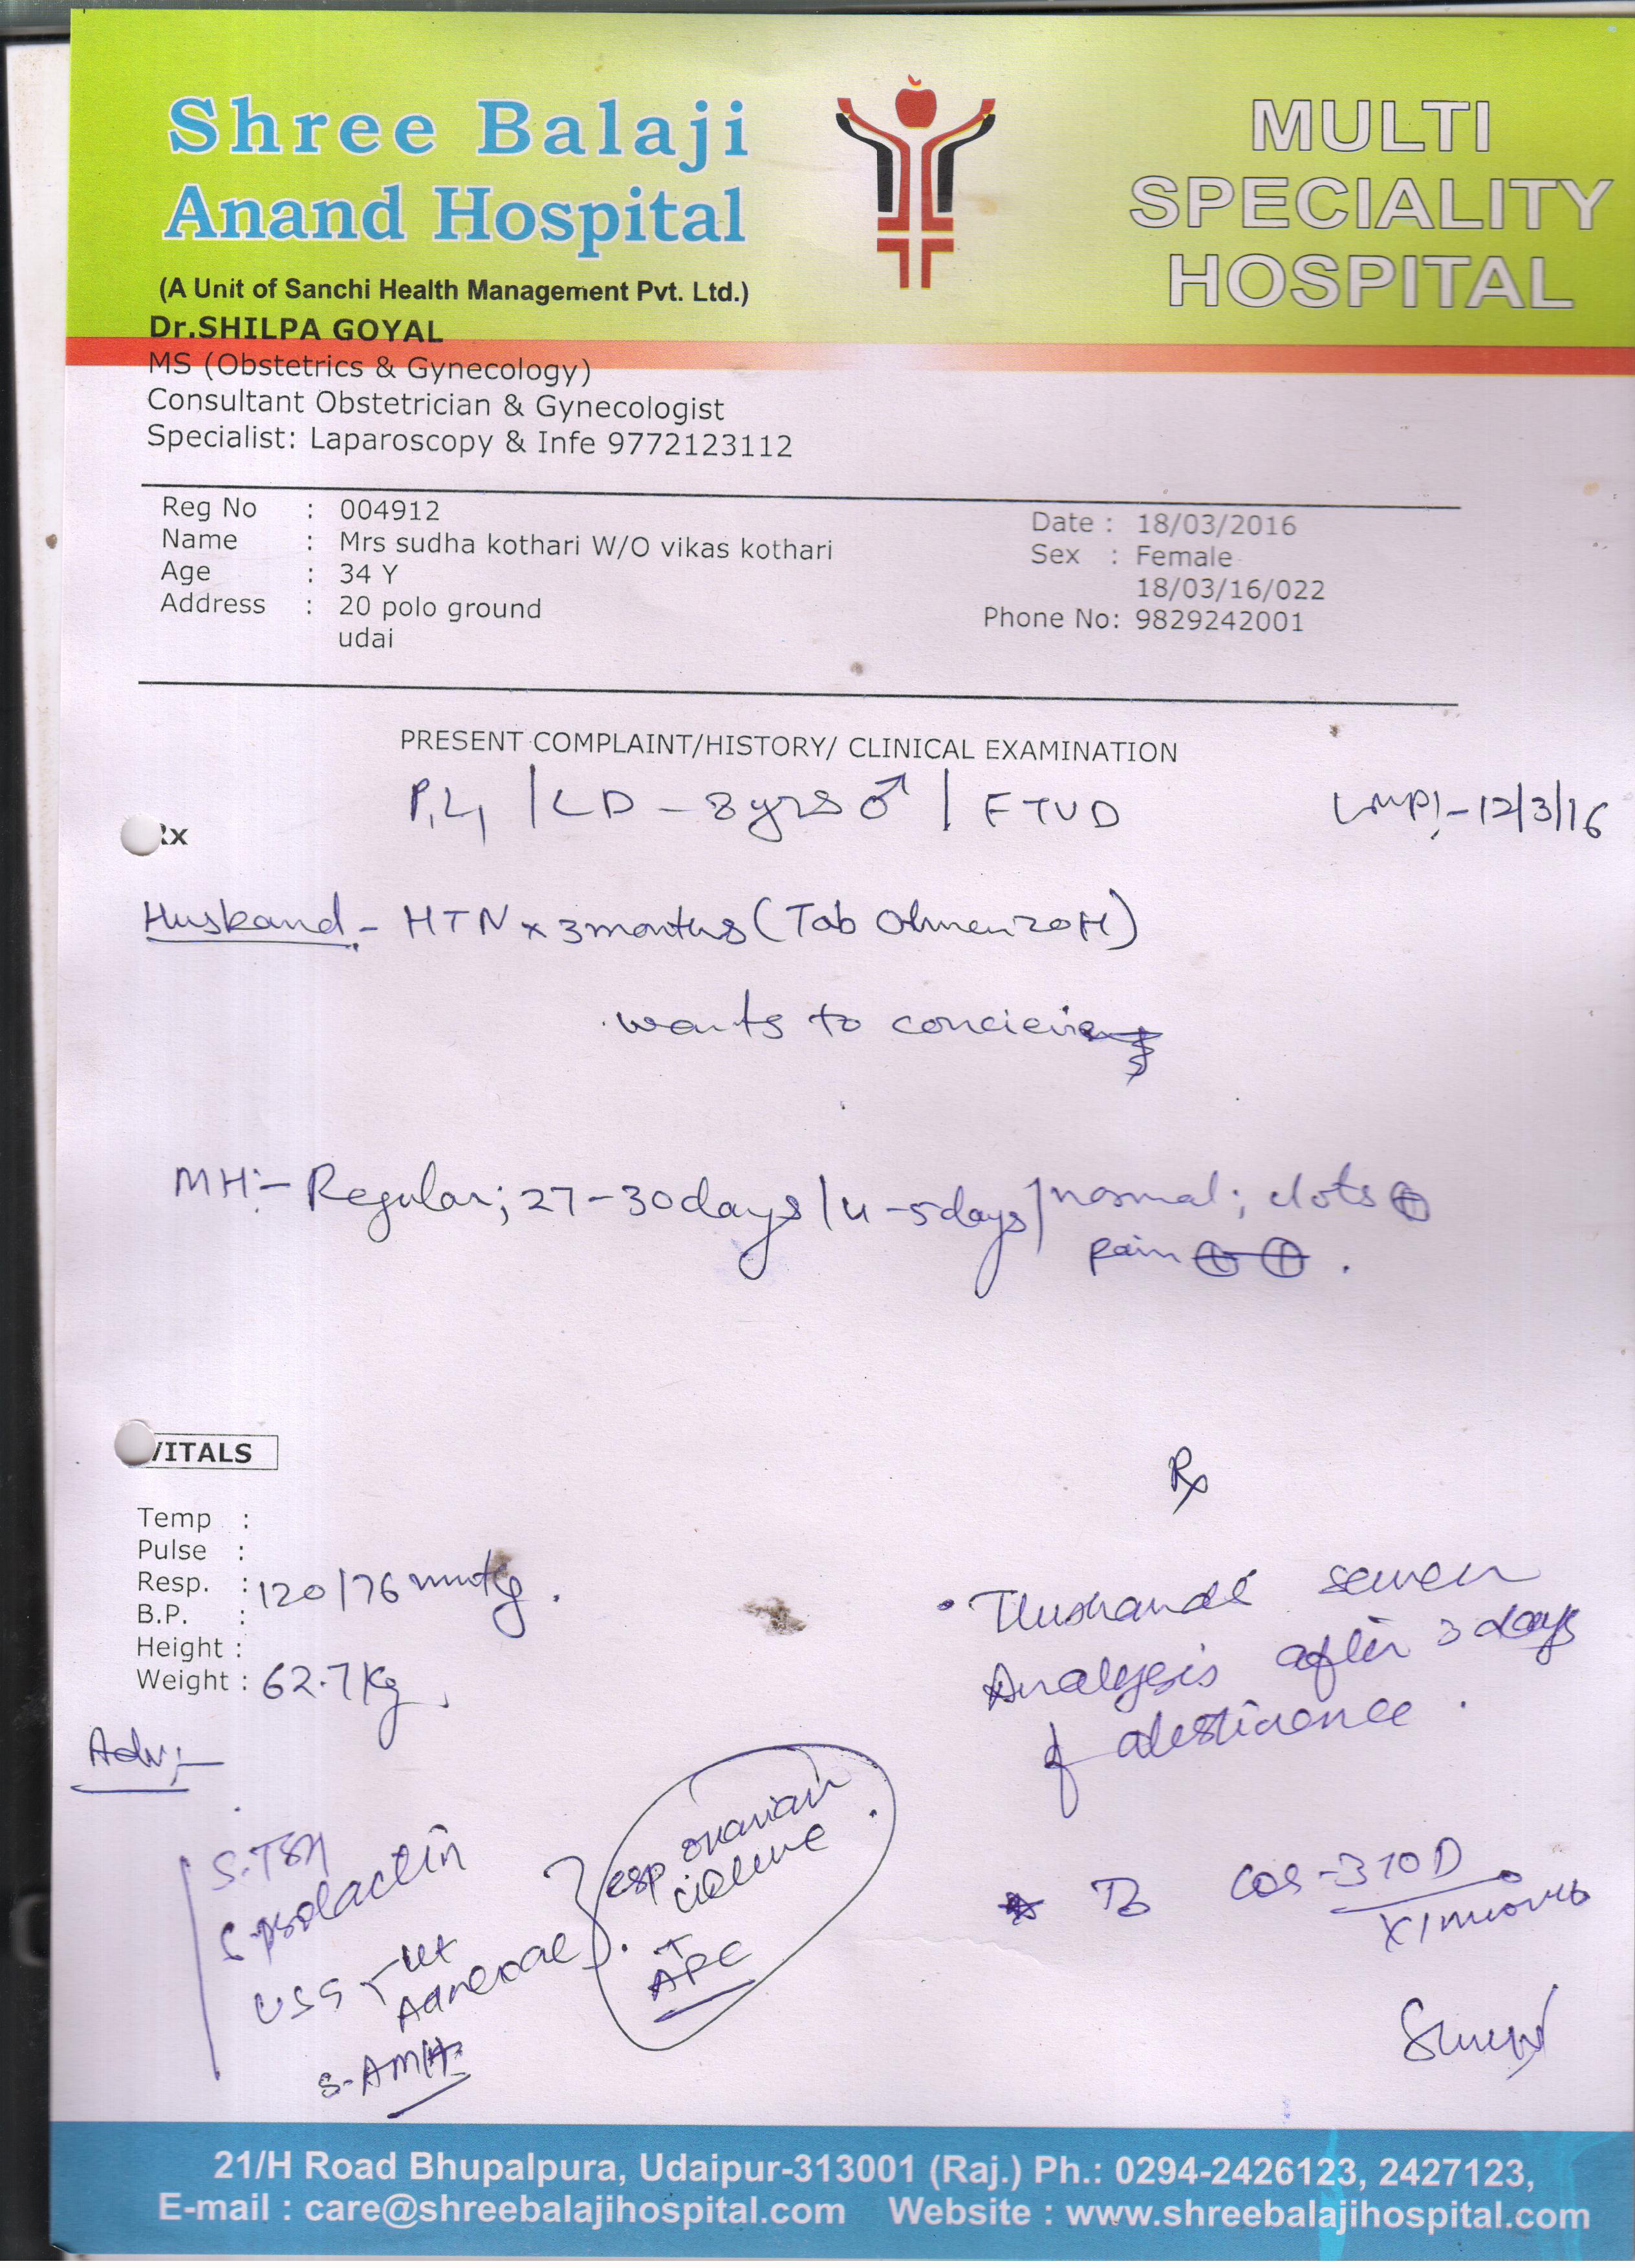 Shree Balaji
Anand Hospital
(A Unit of Sanchi Health Management Pvt. Ltd.)
MULTI
SPECIALITY
HOSPITAL
Dr.SHILPA GOYAL
MS (Obstetrics & Gynecology)
Consultant Obstetrician & Gynecologist
Specialist: Laparoscopy & Infe 9772123112
Reg No : 004912
Name : Mrs sudha kothari W/O vikas kothari
Age : 34 Y
Address : 20 polo ground
udai
Date : 18/03/2016
Sex : Female
18/03/16/022
Phone No: 9829242001
PRESENT COMPLAINT/HISTORY/ CLINICAL EXAMINATION
P1L1 | LD - 8yrs ♂ | FTVD
LMP:- 12/3/16
Rx
Husband - HTN x 3months (Tab 20H)
wants to concieve
MH:- Regular; 27-30days/4-5days/normal; clots ⊕
pain ⊕ ⊕ .
VITALS
Temp :
Pulse :
Resp. :
120/76 mmHg.
B.P. :
Height :
Weight : 62.7 Kg
Adv:-
S.TSH
S.prolactin
USG - Ut
Adnexae
S-AMH
esp ovarian
volume
+
AFC
Rx
• Husband's semen
Analysis after 3 days
of abstinence.
Tb
x 1 month